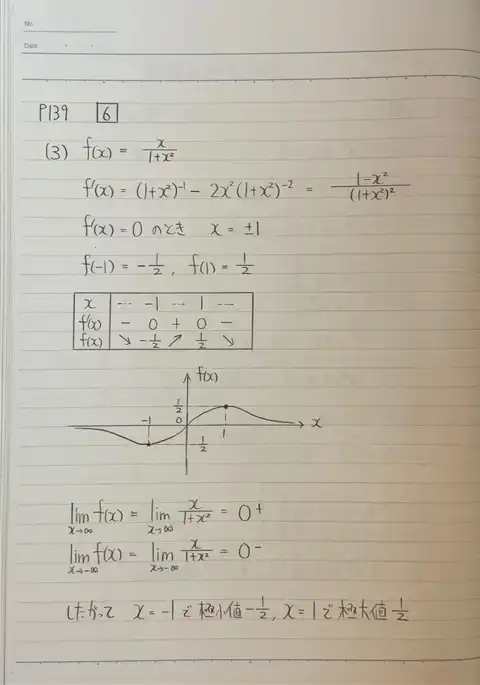 No.
Date
P139 6
(3) f(x) = x/(1+x²)
f'(x) = (1+x²)⁻¹ − 2x²(1+x²)⁻² = (1−x²)/(1+x²)²
f'(x) = 0 のとき x = ±1
f(-1) = −1/2, f(1) = 1/2
x ··· −1 ··· 1 ···
f'(x) − 0 + 0 −
f(x) ↘ −1/2 ↗ 1/2 ↘
f(x)
1/2
−1 0 x
1
−1/2
lim x→∞ f(x) = lim x→∞ x/(1+x²) = 0⁺
lim x→−∞ f(x) = lim x→−∞ x/(1+x²) = 0⁻
したがって x = −1 で 極小値 −1/2, x = 1 で 極大値 1/2